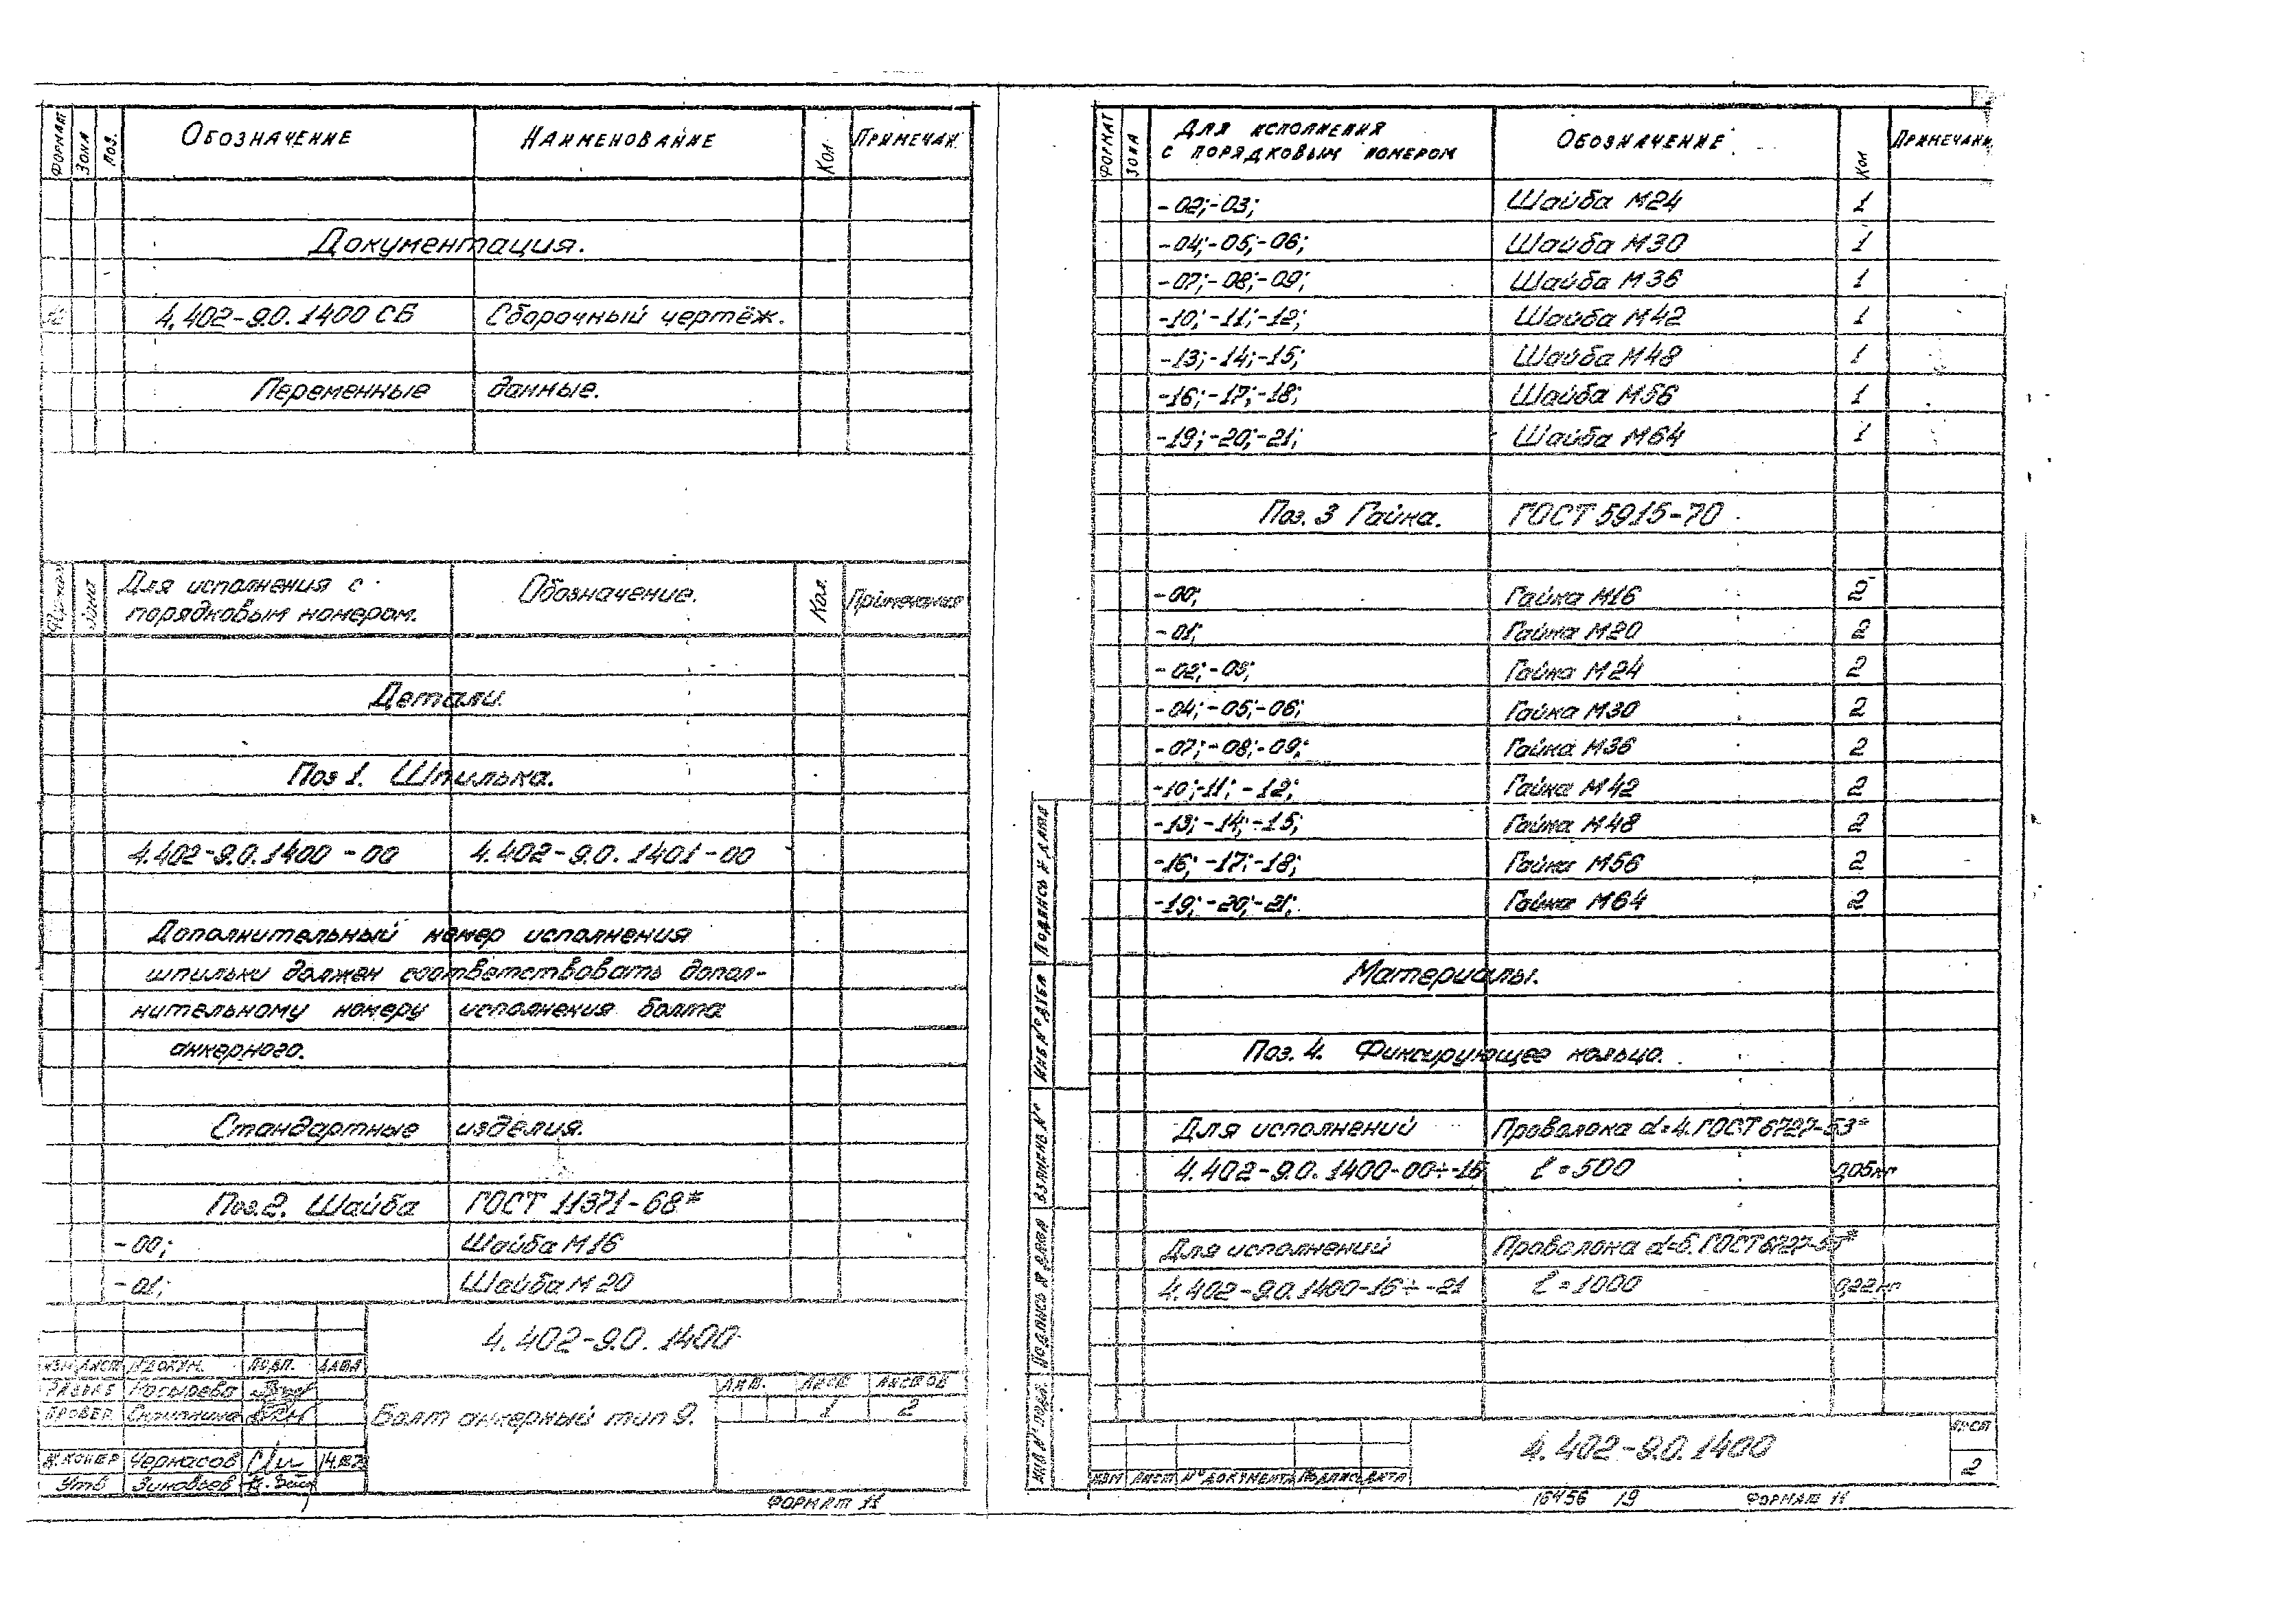 ФОРМАТ ЗОНА ПОЗ. ОБОЗНАЧЕНИЕ НАИМЕНОВАНИЕ КОЛ. ПРИМЕЧАН.
Документация.
4.402-9.0.1400 СБ Сборочный чертёж.
Переменные данные.
Формат Зона Для исполнения с порядковым номером. Обозначение. Кол. Примечания
Детали.
Поз 1. Шпилька.
4.402-9.0.1400-00 4.402-9.0.1401-00
Дополнительный номер исполнения
шпильки должен соответствовать допол-
нительному номеру исполнения болта
анкерного.
Стандартные изделия.
Поз.2. Шайба ГОСТ 11371-68*
-00; Шайба М16
-01; Шайба М20
4.402-9.0.1400
ИЗМ ЛИСТ N ДОКУМ. ПОДП. ДАТА
РАЗРАБ
ПРОВЕР
Н.КОНТР Чернасов
Утв Зиновьев
Болт анкерный тип 9.
ЛИТ. ЛИСТ ЛИСТОВ
1 2
ФОРМАТ 11
ФОРМАТ ЗОНА ДЛЯ ИСПОЛНЕНИЯ С ПОРЯДКОВЫМ НОМЕРОМ ОБОЗНАЧЕНИЕ КОЛ ПРИМЕЧАНИ
-02;-03; Шайба М24 1
-04;-05;-06; Шайба М30 1
-07;-08;-09; Шайба М36 1
-10;-11;-12; Шайба М42 1
-13;-14;-15; Шайба М48 1
-16;-17;-18; Шайба М56 1
-19;-20;-21; Шайба М64 1
Поз. 3 Гайка. ГОСТ 5915-70
-00; Гайка М16 2
-01; Гайка М20 2
-02;-03; Гайка М24 2
-04;-05;-06; Гайка М30 2
-07;-08;-09; Гайка М36 2
-10;-11;-12; Гайка М42 2
-13;-14;-15; Гайка М48 2
-16;-17;-18; Гайка М56 2
-19;-20;-21; Гайка М64 2
Материалы.
Поз. 4. Фиксирующее кольцо.
Для исполнений Проволока d=4. ГОСТ 6727-53*
4.402-9.0.1400-00÷-15 ℓ=500 0,05кг
Для исполнений Проволока d=6. ГОСТ 6727-53*
4.402-9.0.1400-16÷-21 ℓ=1000 0,22кг
ПОДПИСЬ И ДАТА
ИНВ N° ДУБЛ
ВЗАМ ИНВ. N°
ПОДПИСЬ И ДАТА
ИНВ N° ПОДЛ.
4.402-9.0.1400
ИЗМ ЛИСТ N° ДОКУМЕНТА ПОДПИСЬ ДАТА
ЛИСТ
2
16456 19 ФОРМАТ 11